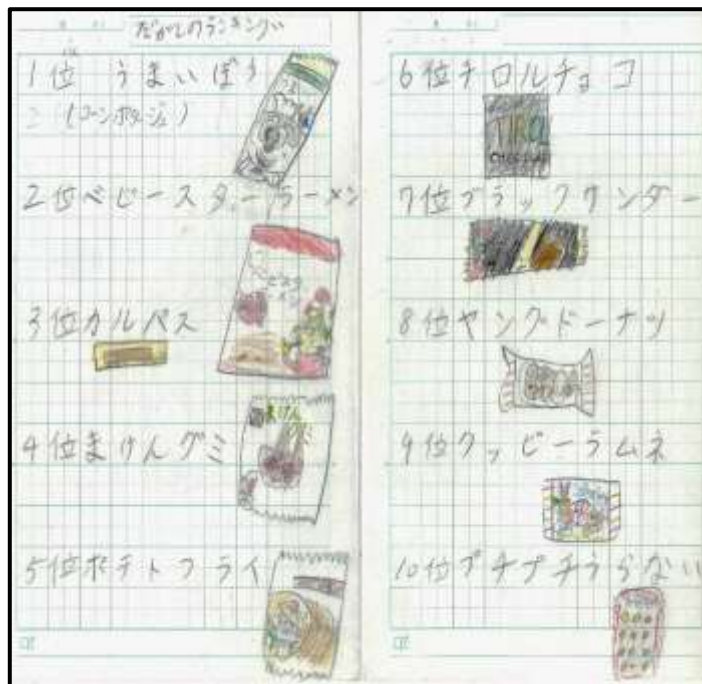 だがしのランキング
1位 うまいぼう
(コーンポタージュ)
2位ベビースターラーメン
3位カルパス
4位まけんグミ
まけん
グミ
5位ポテトフライ
6位チロルチョコ
7位ブラックサンダー
8位ヤングドーナツ
9位クッピーラムネ
10位プチプチうらない